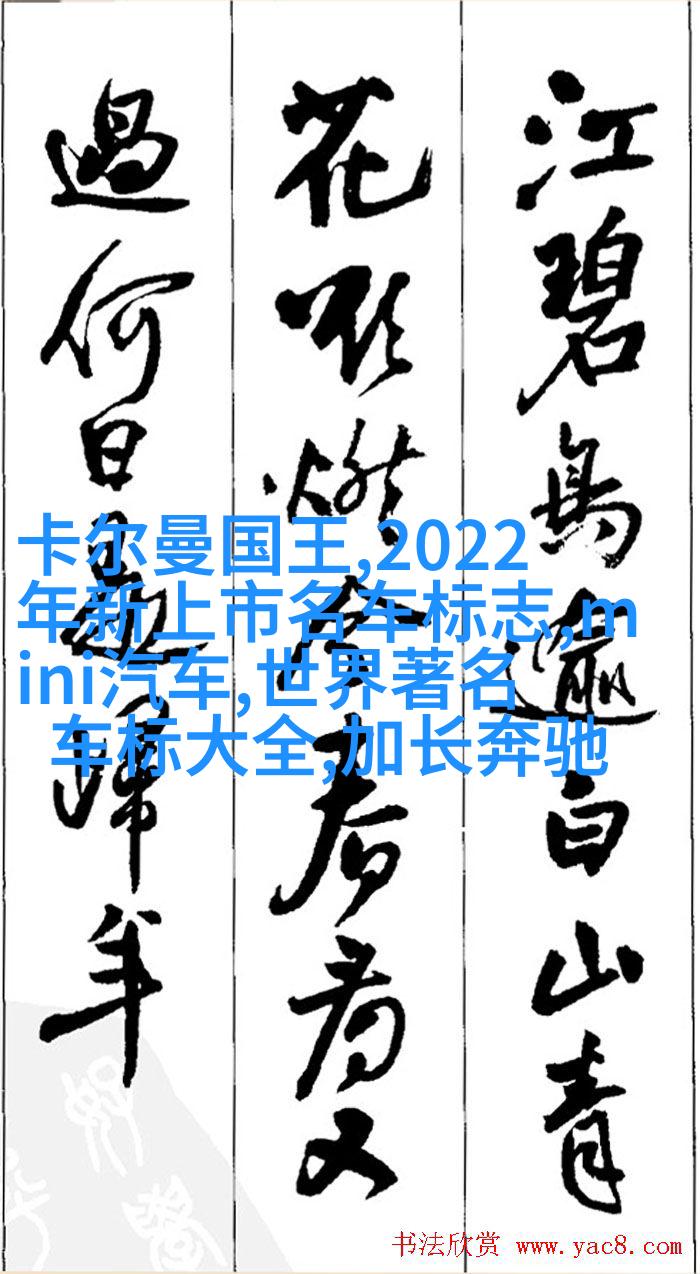 江碧鳥逾白山青
花欲燃今春看又
過何日是歸年
卡尔曼国王,2022
年新上市名车标志,m
ini汽车,世界著名
车标大全,加长奔驰
书法欣赏 www.yac8.com